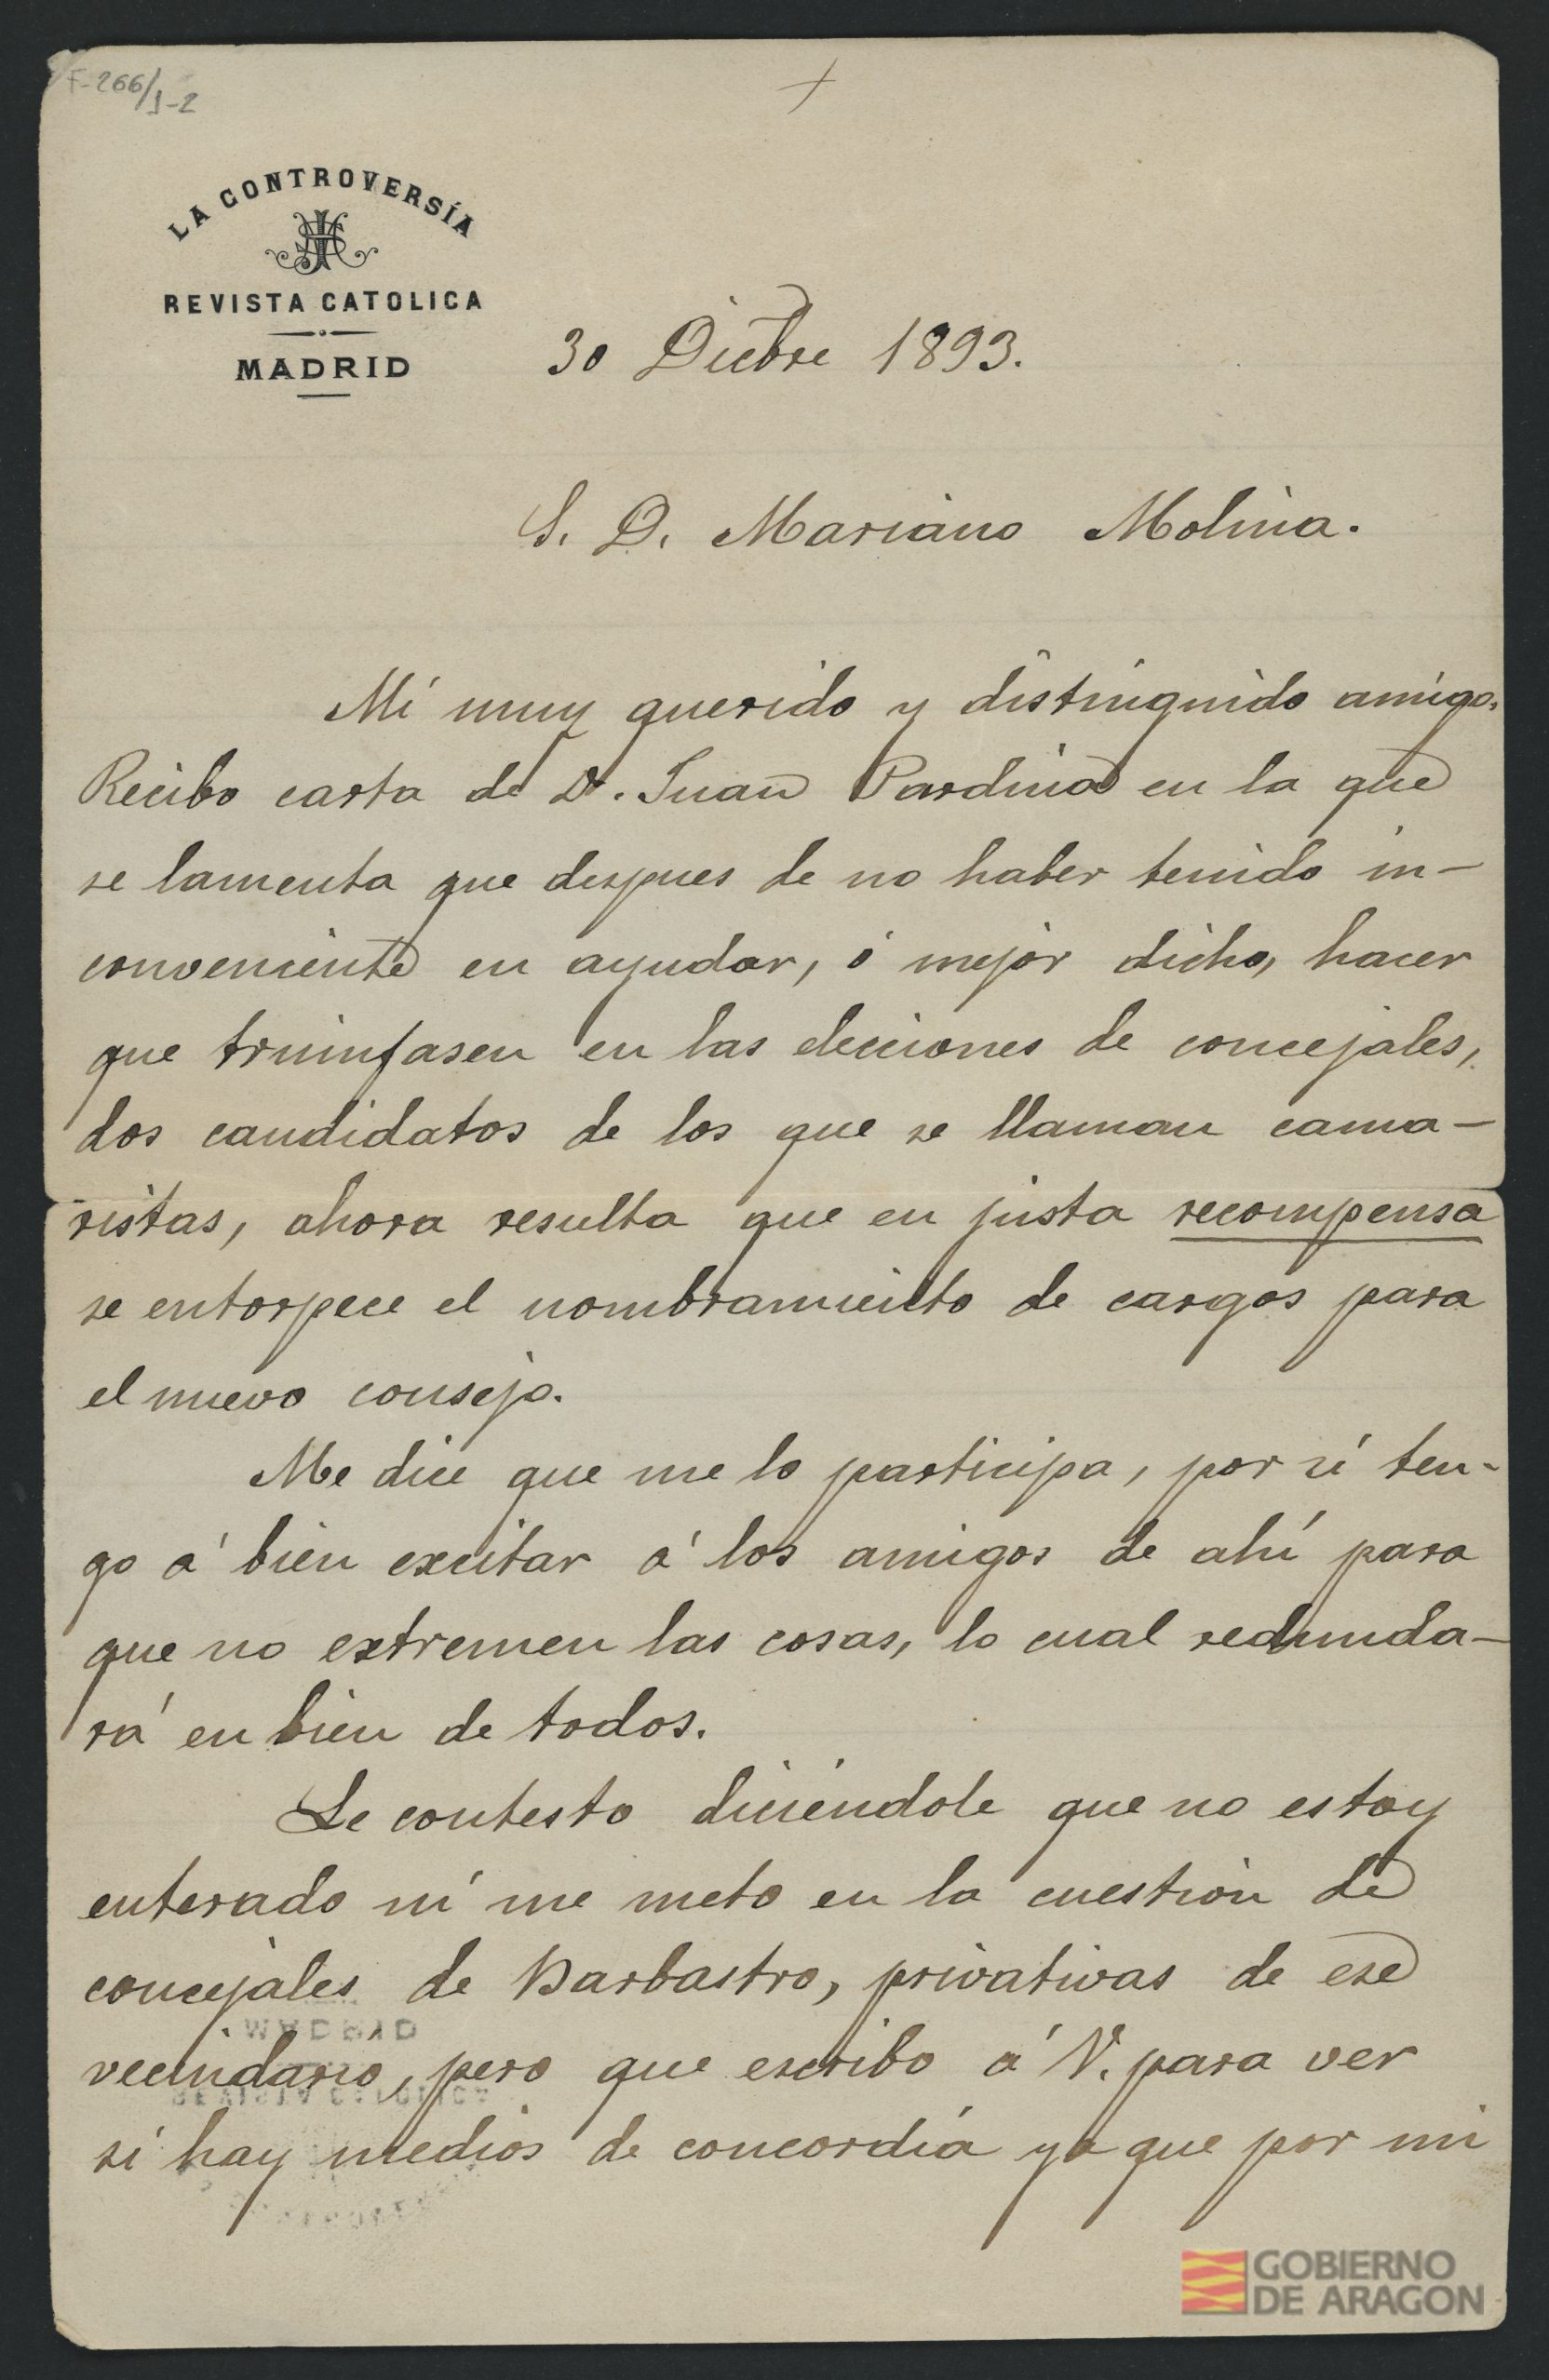 F-266/1-2
LA CONTROVERSÍA
REVISTA CATOLICA
MADRID
30 Dicbre 1893.
S. D. Mariano Molina.
Mi muy querido y distinguido amigo.
Recibo carta de D. Juan Pardina en la que
se lamenta que despues de no haber tenido in-
conveniente en ayudar, ó mejor dicho, hacer
que triunfasen en las elecciones de concejales,
dos candidatos de los que se llaman cama-
ristas, ahora resulta que en justa recompensa
se entorpece el nombramiento de cargos para
el nuevo consejo.
Me dice que me lo participa, por si ten-
go á bien excitar á los amigos de ahí para
que no extremen las cosas, lo cual redunda-
rá en bien de todos.
Le contesto diciéndole que no estoy
enterado ni me meto en la cuestión de
concejales de Barbastro, privativas de ese
vecindario, pero que escribo á V. para ver
si hay medios de concordia ya que por mi
GOBIERNO
DE ARAGON